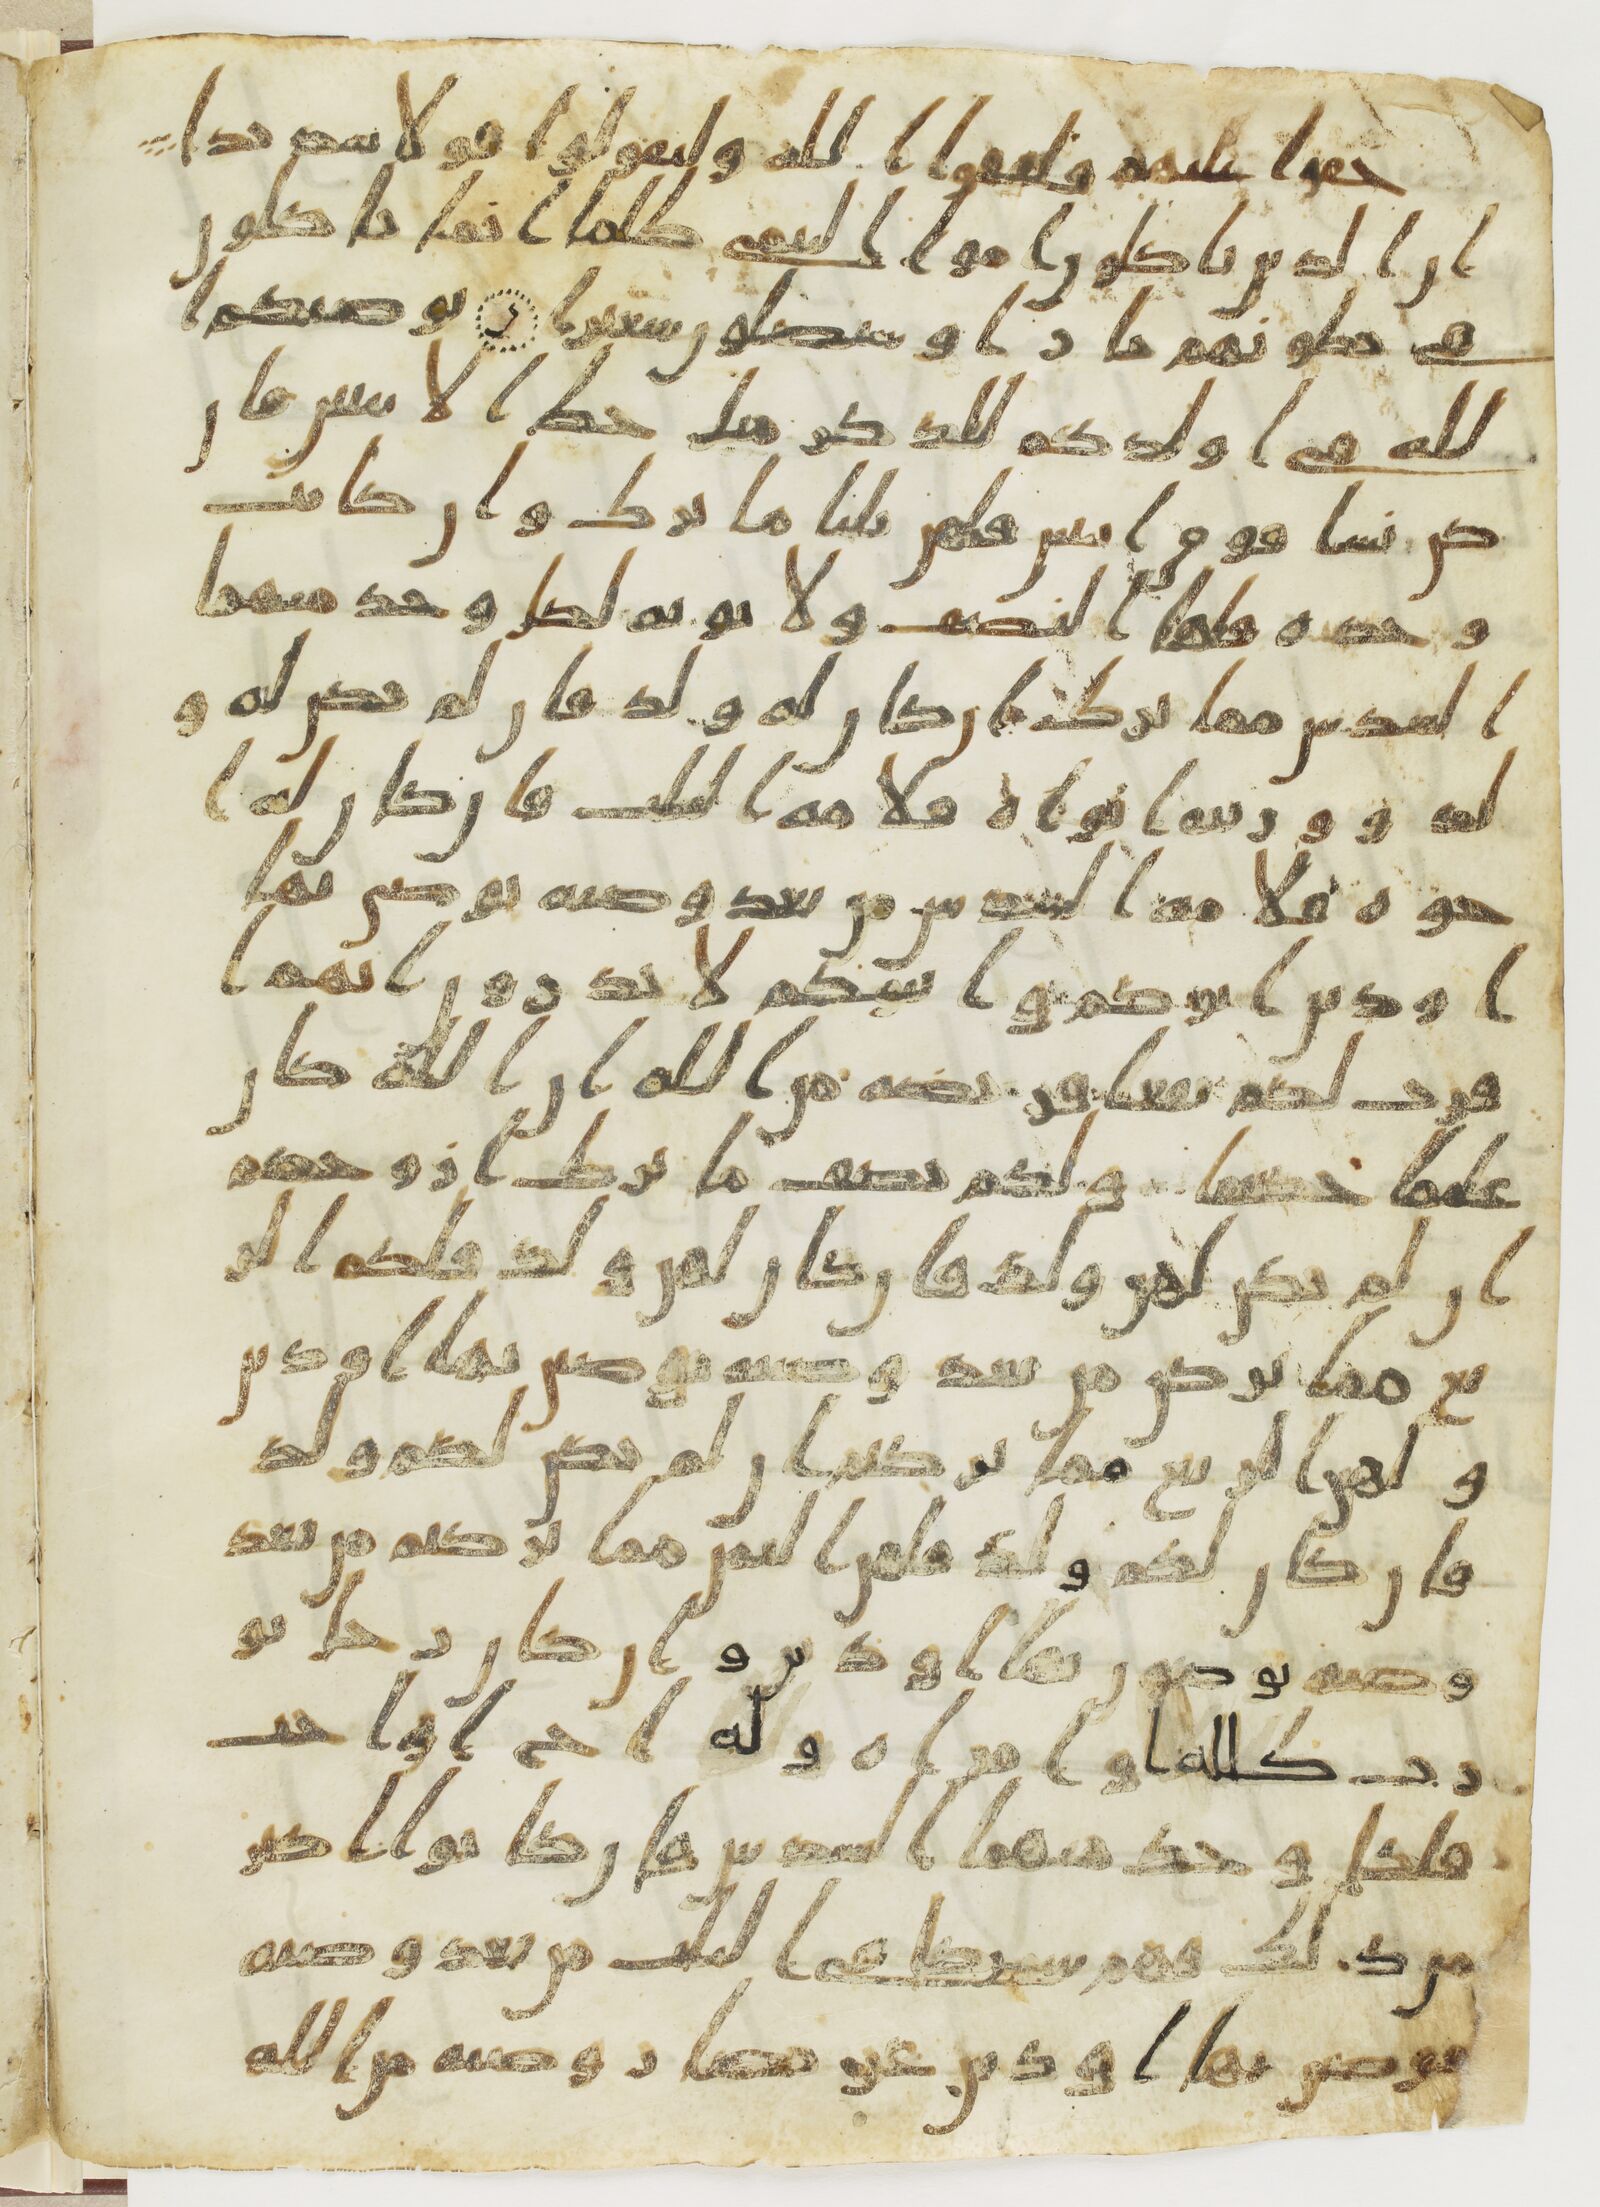 خفوا عليهم فليتقوا الله وليقولوا قولا سديدا
ان الذين ياكلون امول اليتمى ظلما انما ياكلون
في بطونهم نارا وسيصلون سعيرا يوصيكم ا
لله في اولدكم للذكر مثل حظ الانثيين فان
كن نسا فوق اثنتين فلهن ثلثا ما ترك وان كانت
وحده فلها النصف ولابويه لكل وحد منهما
السدس مما ترك ان كان له ولد فان لم يكن له و
لد وورثه ابواه فلامه الثلث فان كان له ا
خوه فلامه السدس من بعد وصيه يوصي بها
او دين ابوكم وابنوكم لا تدرون ايهم ا
قرب لكم نفعا فريضه من الله ان الله كان
عليما حكيما ولكم نصف ما ترك ازوجكم
ان لم يكن لهن ولد فان كان لهن ولد فلكم الر
بع مما تركن من بعد وصيه يوصين بها او دين
ولهن الربع مما تركتم ان لم يكن لكم ولد
فان كان لكم ولد فلهن الثمن مما تركتم من بعد
وصيه توصون بها او دين وان كان رجل يو
رث كلله او امراه وله اخ او اخت
فلكل وحد منهما السدس فان كانوا اكثر
من ذلك فهم شركا في الثلث من بعد وصيه
يوصي بها او دين غير مضار وصيه من الله